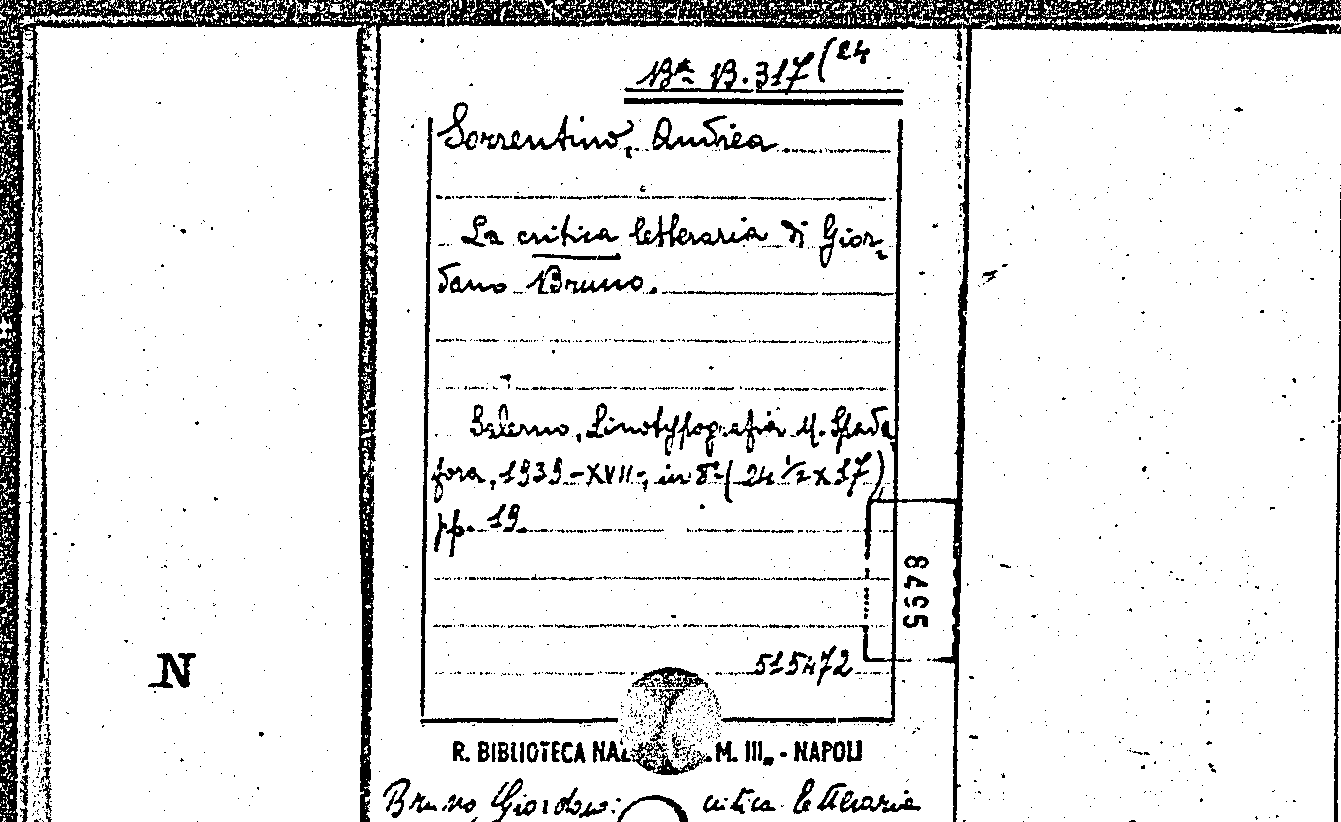 Bª B.317(24
Sorrentino, Andrea.
La critica letteraria di Gior-
dano Bruno.
Salerno, Linotypografia M. Spada
fora, 1939-XVII-; in 8°-( 24 ½ x 17)
pp. 19.
8495
515472
N
R. BIBLIOTECA NAZ M. III„ - NAPOLI
Bruno, Giordano: critica letteraria